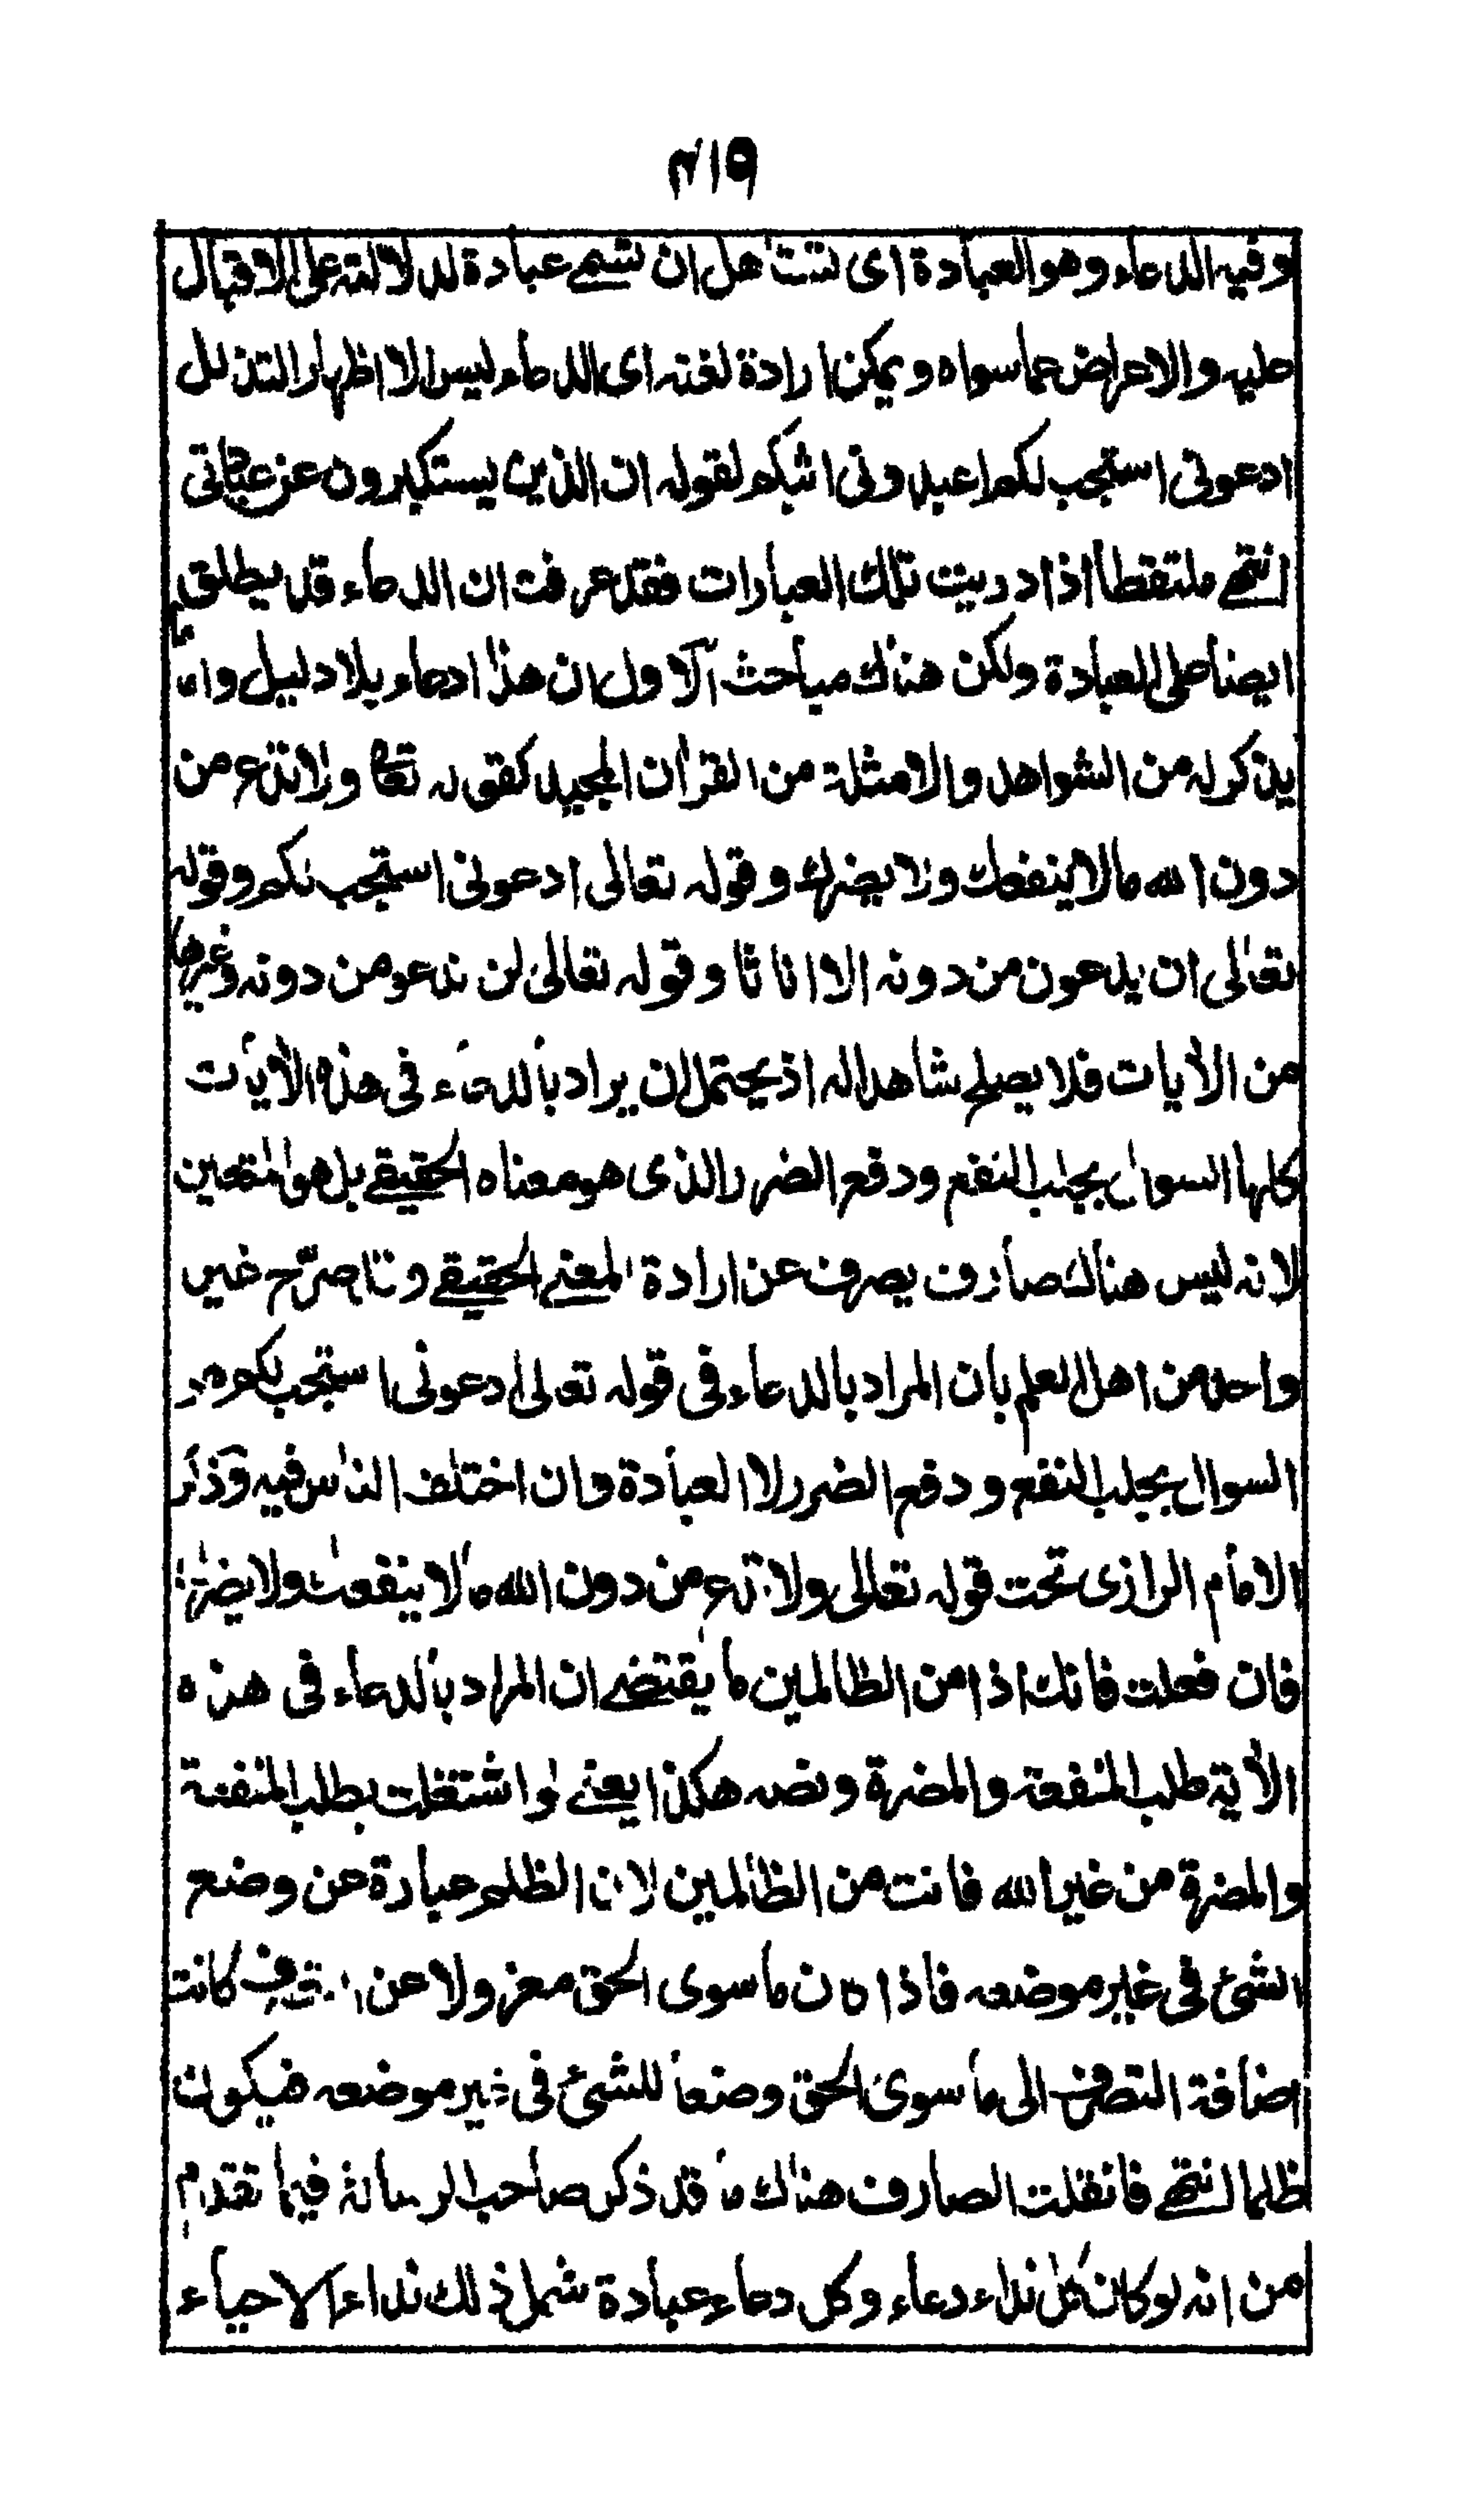 ٤١٩
وفيه الدعاء وهو العبادة اى تستاهل ان تسمى عبادة لدلالته على الاقبال
عليه والاعراض عما سواه ويمكن ارادة لغته اى الدعاء ليس الا اظهار التذلل
ادعونى استجب لكم اعبدونى اثبكم لقوله ان الذين يستكبرون عن عبادتى
انتهى ملتقطا اذا دريت تلك العبارات فقد عرفت ان الدعاء قد يطلق
ايضا على العبادة ولكن هناك مباحث الاول ان هذا ادعاء بلا دليل واما
يذكر له من الشواهد والامثلة من القرآن المجيد كقوله تعالى ولا تدع من
دون الله مالا ينفعك ولا يضرك وقوله تعالى ادعونى استجب لكم وقوله
تعالى ان يدعون من دونه الا اناثا وقوله تعالى لن ندعو من دونه وغيرها
من الآيات فلا يصلح شاهدا له اذ يحتمل ان يراد بالدعاء فى هذه الآيات
كلها السوال بجلب النفع ودفع الضرر الذى هو معناه الحقيقى بل هو المتعين
لانه ليس هناك صارف يصرف عن ارادة المعنى الحقيقى وقد صرّح غير
واحد من اهل العلم بان المراد بالدعاء فى قوله تعالى ادعونى استجب لكم هو
السوال بجلب النفع ودفع الضرر لا العبادة وان اختلف الناس فيه وذكر
الامام الرازى تحت قوله تعالى ولا تدع من دون الله مالا ينفعك ولا يضرك
فان فعلت فانك اذا من الظالمين ما يقتضى ان المراد بالدعاء فى هذه
الآية طلب المنفعة والمضرة ونصه هكذا يعنى لو اشتغلت بطلب المنفعة
والمضرة من غير الله فانت من الظالمين لان الظلم عبارة عن وضع
الشئ فى غير موضعه فاذا كان ما سوى الحق معزولا عن التصرف كانت
اضافة التصرف الى ما سوى الحق وضعا للشئ فى غير موضعه فيكون
ظلما انتهى فانقلت الصارف هناك ما قد ذكر صاحب الرسالة فيما تقدم
من انه لو كان كل نداء دعاء وكل دعاء عبادة شمل ذلك نداء الاحياء